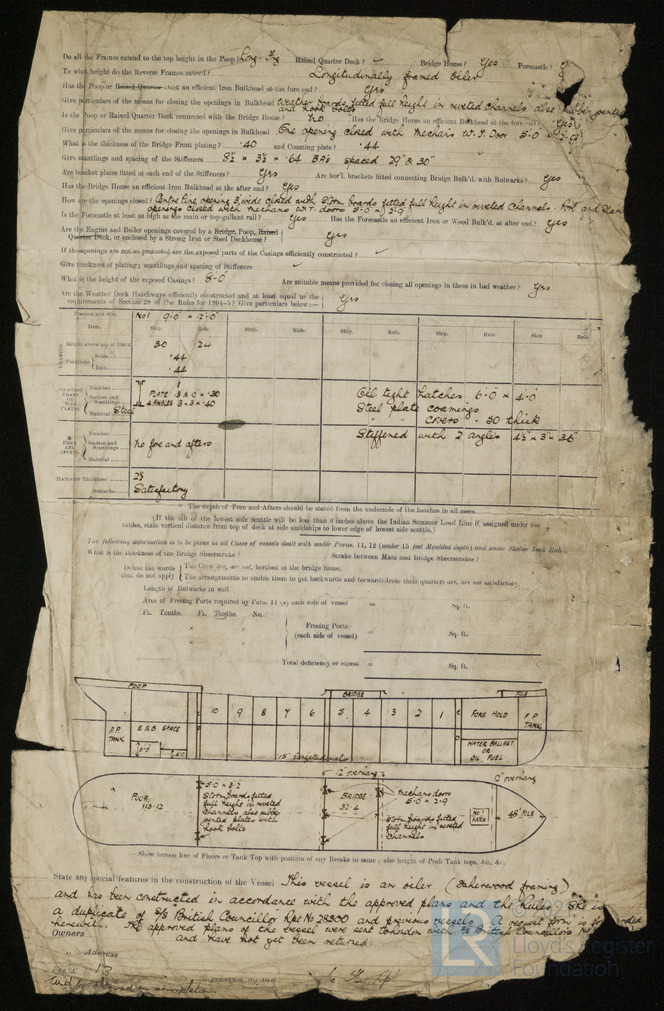 Do all the Frames extend to the top height in the Poop? Long Fr Raised Quarter Deck? Bridge House? Yes Forecastle?
To what height do the Reverse Frames extend? Longitudinally framed oiler
Has the Poop or Raised Quarter Deck an efficient Iron Bulkhead at the fore end? Yes
Give particulars of the means for closing the openings in Bulkhead Weather boards fitted full height in riveted channels also
and hook bolts
Is the Poop or Raised Quarter Deck connected with the Bridge House? No Has the Bridge House an efficient Bulkhead at the fore end? Yes
Give particulars of the means for closing the openings in Bulkhead One opening closed with Mechans W.T. Door 5-0 × 2-9
What is the thickness of the Bridge Front plating? .40 and Coaming plate? .44
Give scantlings and spacing of the Stiffeners 8½ × 3½ × .64 BAs spaced 29" & 30"
Are bracket plates fitted at each end of the Stiffeners? Yes Are hor'l. brackets fitted connecting Bridge Bulk'd. with Bulwarks? Yes
Has the Bridge House an efficient Iron Bulkhead at the after end? Yes
How are the openings closed? Centre line opening 5' wide closed with storm boards fitted full height in riveted channels. Port and Star
openings closed with Mechans W.T. doors 5-0 × 2-9
Is the Forecastle at least as high as the main or top-gallant rail? Yes Has the Forecastle an efficient Iron or Wood Bulk'd. at after end? Yes
Are the Engine and Boiler openings covered by a Bridge, Poop, Raised
Quarter Deck, or enclosed by a Strong Iron or Steel Deckhouse? Yes
If the openings are not so protected are the exposed parts of the Casings efficiently constructed?
Give thickness of plating; scantlings and spacing of Stiffeners
What is the height of the exposed Casings? 8-0 Are suitable means provided for closing all openings in them in bad weather? Yes
Are the Weather Deck Hatchways efficiently constructed and at least equal to the
requirements of Section 28 of the Rules for 1904-5? Give particulars below:— Yes
Position and Size No1 9-0 × 12-0
Item. Ship. Rule. Ship. Rule. Ship. Rule. Ship. Rule.
Height above top of Deck 30 24
Thickness Sides .44
Ends .44
Number 1
Section and Scantlings PLATE × .30
4 ANGLES 3 × 3 × .40
Material Steel
Oil tight hatches 6-0 × 4-0
Steel plate coamings
" " covers .50 thick
Stiffened with 2 angles 4½ × 3 × .36
FORE AND AFTERS
Number
Section and Scantlings No fore and afters
Material
Hatches Thickness 2½
Remarks Satisfactory
The depth of Fore and Afters should be stated from the underside of the hatches in all cases.
(If the sill of the lowest side scuttle will be less than 6 inches above the Indian Summer Load Line if assigned under the
tables, state vertical distance from top of deck at side amidships to lower edge of lowest side scuttle.)
The following information is to be given in all Cases of vessels dealt with under Paras. 11, 12 (under 15 feet Moulded depth) and under Shelter Deck Rule.
What is the thickness of the Bridge Sheerstrake? Strake between Main and Bridge Sheerstrakes?
Delete the words that do not apply The Crew are, are not, berthed in the bridge house.
The arrangements to enable them to get backwards and forwards from their quarters are, are not satisfactory.
Length of Bulwarks in well
Area of Freeing Ports required by Para. 11 (e) each side of vessel = Sq. ft.
Ft. Tenths. Ft. Tenths. No.
× Freeing Ports (each side of vessel) = Sq. ft.
×
Total deficiency or excess = Sq. ft.
POOP BRIDGE FCLE
A.P. TANK E & B SPACE 10 9 8 7 6 5 4 3 2 1 FORE HOLD F.P. TANK
WATER BALLAST OR OIL FUEL
12" overhang 12" overhang
POOP 113-12
5-0 × 2-2
Storm boards fitted
full height in riveted
channels also
plates with
hook bolts
BRIDGE 32-4
Mechans doors
5-0 × 2-9
Storm boards fitted
full height in riveted
channels
No1 HATCH
F'CLE
Show hereon line of Floors or Tank Top with position of any Breaks in same; also height of Peak Tank tops, &c., &c.
State any special features in the construction of the Vessel This vessel is an oiler (Isherwood framing)
and has been constructed in accordance with the approved plans and the Rules. She is
a duplicate of S/S British Councillor Rpt No 28300 and previous vessels. A request form is
herewith. The approved plans of the vessel were sent to London with S/S British Councillors
and have not yet been returned
Owners
" Address
Fee £
Lloyd's Register
Foundation
LR